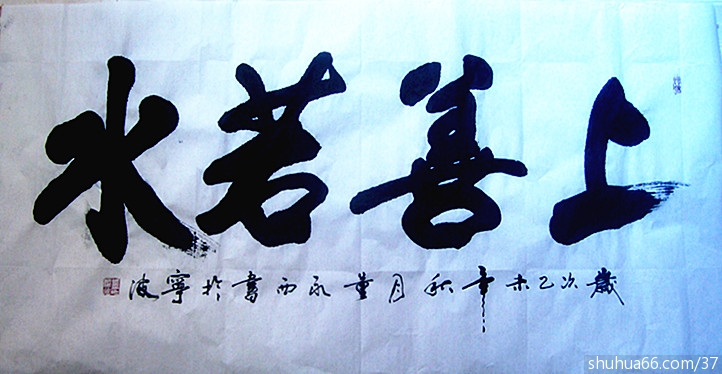 上善若水
歲次乙未年秋月董永西書於寧波
shuhua66.com/37